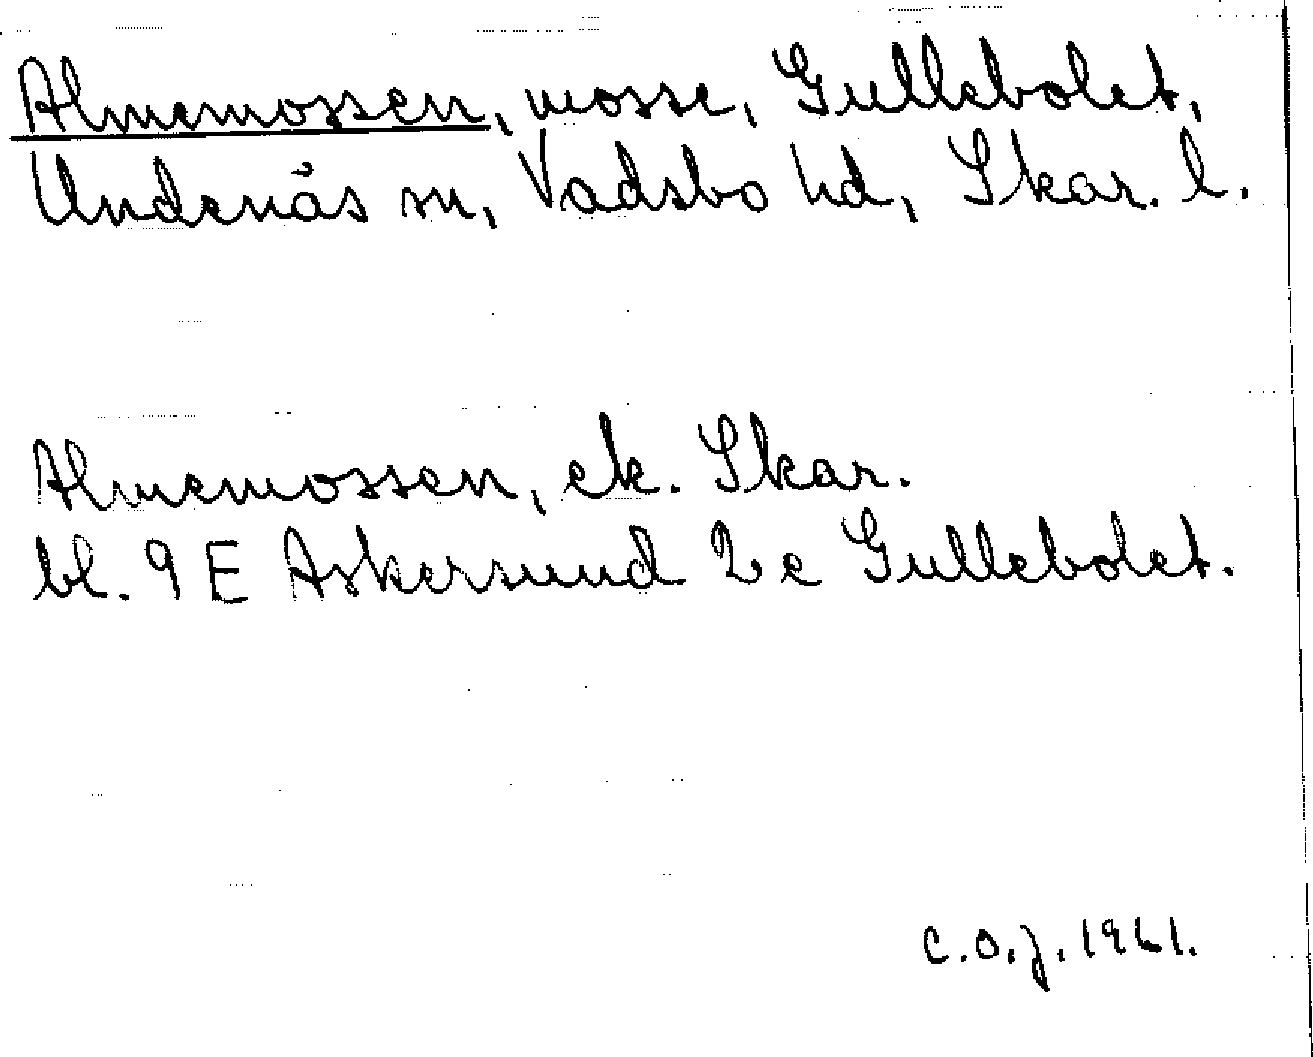 Almemossen, mosse, Gullebolet,
Undenäs sn, Vadsbo hd, Skar. l.
Almemossen, ek. Skar.
bl. 9 E Askersund 2 e Gullebolet.
C.O.J. 1961.